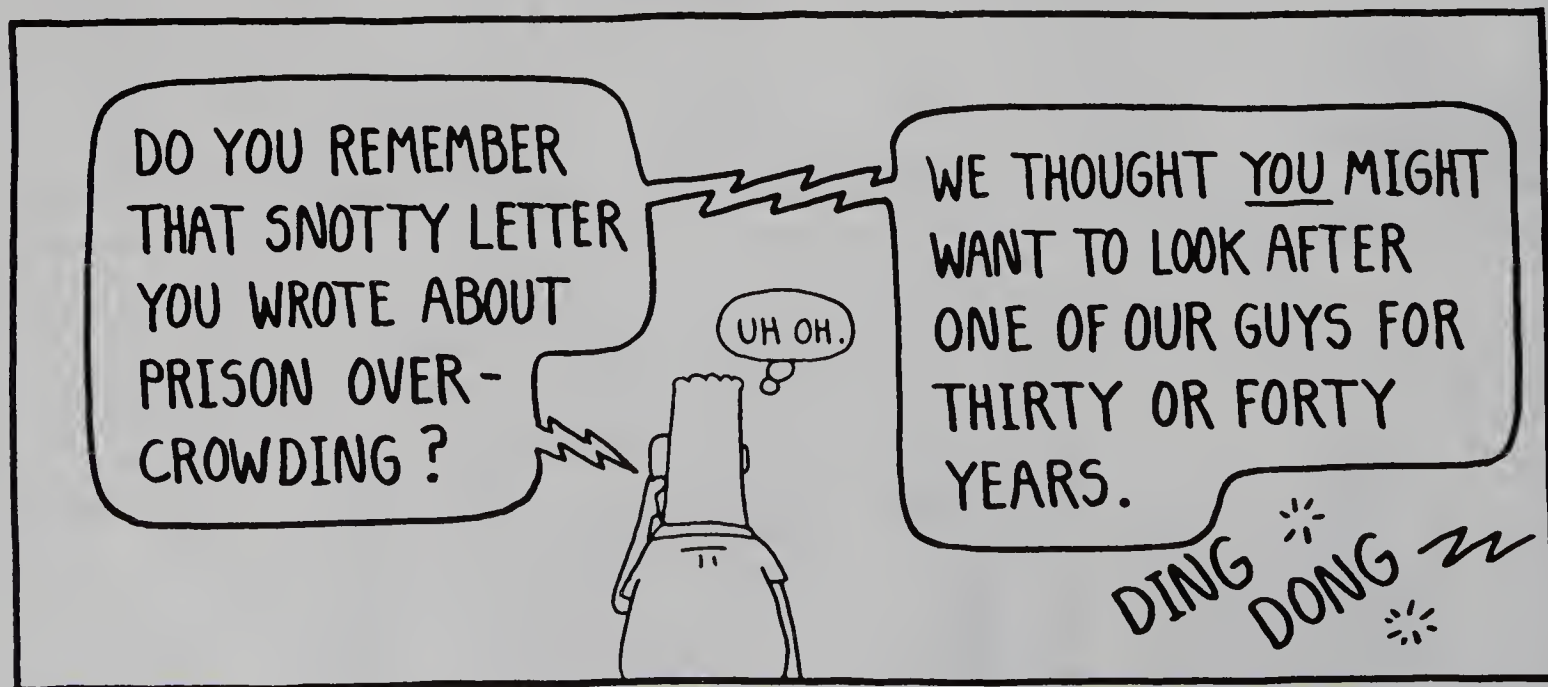 DO YOU REMEMBER
THAT SNOTTY LETTER
YOU WROTE ABOUT
PRISON OVER-
CROWDING?
UH OH.
WE THOUGHT YOU MIGHT
WANT TO LOOK AFTER
ONE OF OUR GUYS FOR
THIRTY OR FORTY
YEARS.
DING
DONG